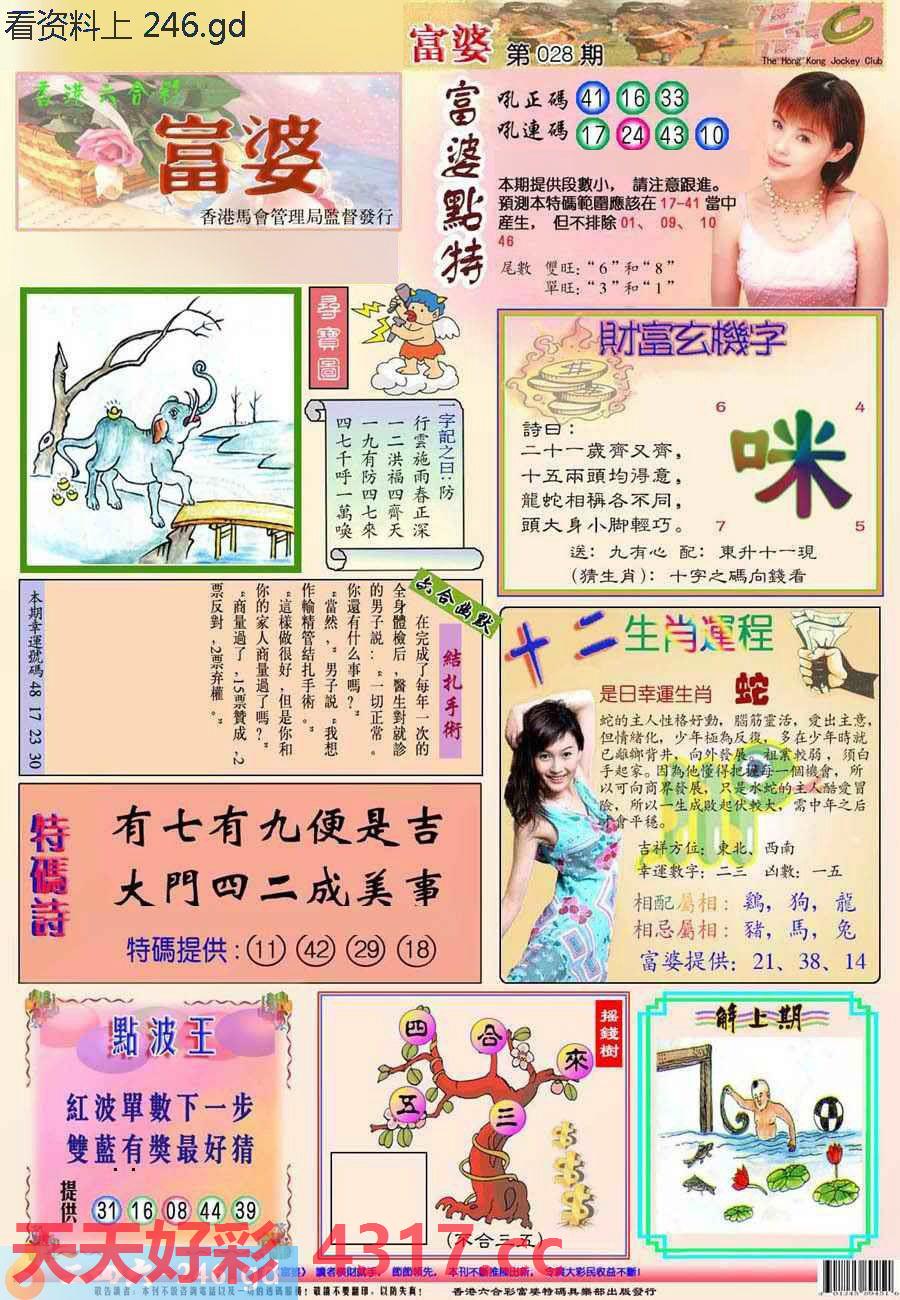 看资料上 246.gd
富婆 第 028 期
The Hong Kong Jockey Club
香港六合彩
富婆
香港馬會管理局監督發行
富婆點特
吼正碼 41 16 33
吼連碼 17 24 43 10
本期提供段數小， 請注意跟進。
預測本特碼範圍應該在 17-41 當中
産生， 但不排除 01、 09、 10
46
尾數 雙旺：“6”和“8”
單旺：“3”和“1”
尋寶圖
一字記之曰：防
行雲施雨春正深
一二洪福四齊天
一九有防四七來
四七千呼一萬喚
財富玄機字
6 4
咪
7 5
詩曰：
二十一歲齊又齊，
十五兩頭均得意，
龍蛇相稱各不同，
頭大身小脚輕巧。
送：九有心 配：東升十一現
（猜生肖）：十字之碼向錢看
六合幽默
結扎手術
在完成了每年一次的
全身體檢后，醫生對就診
的男子説：“一切正常。
你還有什么事嗎？”
“當然，”男子説“我想
作輸精管結扎手術。”
“這樣做很好，但是你和
你的家人商量過了嗎？”
“商量過了，15票贊成，2
票反對，2票弃權。”
本期幸運號碼 48 17 23 30
十二生肖運程
是日幸運生肖 蛇
蛇的主人性格好動，腦筋靈活，愛出主意，
但情緒化，少年極為反復，多在少年時就
已離鄉背井，向外發展。祖業較弱，須白
手起家。因為他懂得把握每一個機會，所
以可向商界發展，只是水蛇的主人酷愛冒
險，所以一生成敗起伏較大，需中年之后
才會平穩。
吉祥方位：東北、西南
幸運數字：二三 凶數：一五
相配屬相：鷄，狗，龍
相忌屬相：豬，馬，兔
富婆提供：21、38、14
特碼詩
有七有九便是吉
大門四二成美事
特碼提供：11 42 29 18
點波王
紅波單數下一步
雙藍有獎最好猜
提供 31 16 08 44 39
搖錢樹
四 合 來
五 三
（不合三五）
解上期
天天好彩 4317.cc
246.gd
《富婆》 讀者橫財就手， 節節領先， 本刊不斷推陳出新， 令廣大彩民收益不斷！
敬告讀者：本刊不設咨詢電話以及一切的透碼服務！敬請不要翻印，以防失真！ 香港六合彩富婆特碼俱樂部出版發行